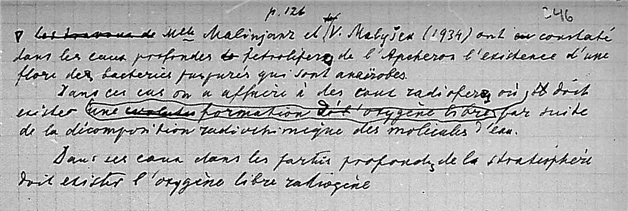 p. 126 246
les travaux de Melle Malinjanz et V. Malyšek (1934) ont constaté
dans les eaux profondes petrolifères de l'Apcheron l'existence d'une
flore des bacteries purpures qui sont anaërobes.
Dans ces cas on a affaire à des eaux radiofères où doit
exister une formation de l'oxygène libre par suite
de la décomposition radiochimique des molécules d'eau.
Dans ces eaux dans les parties profondes de la stratisphère
doit exister l'oxygène libre radiogène